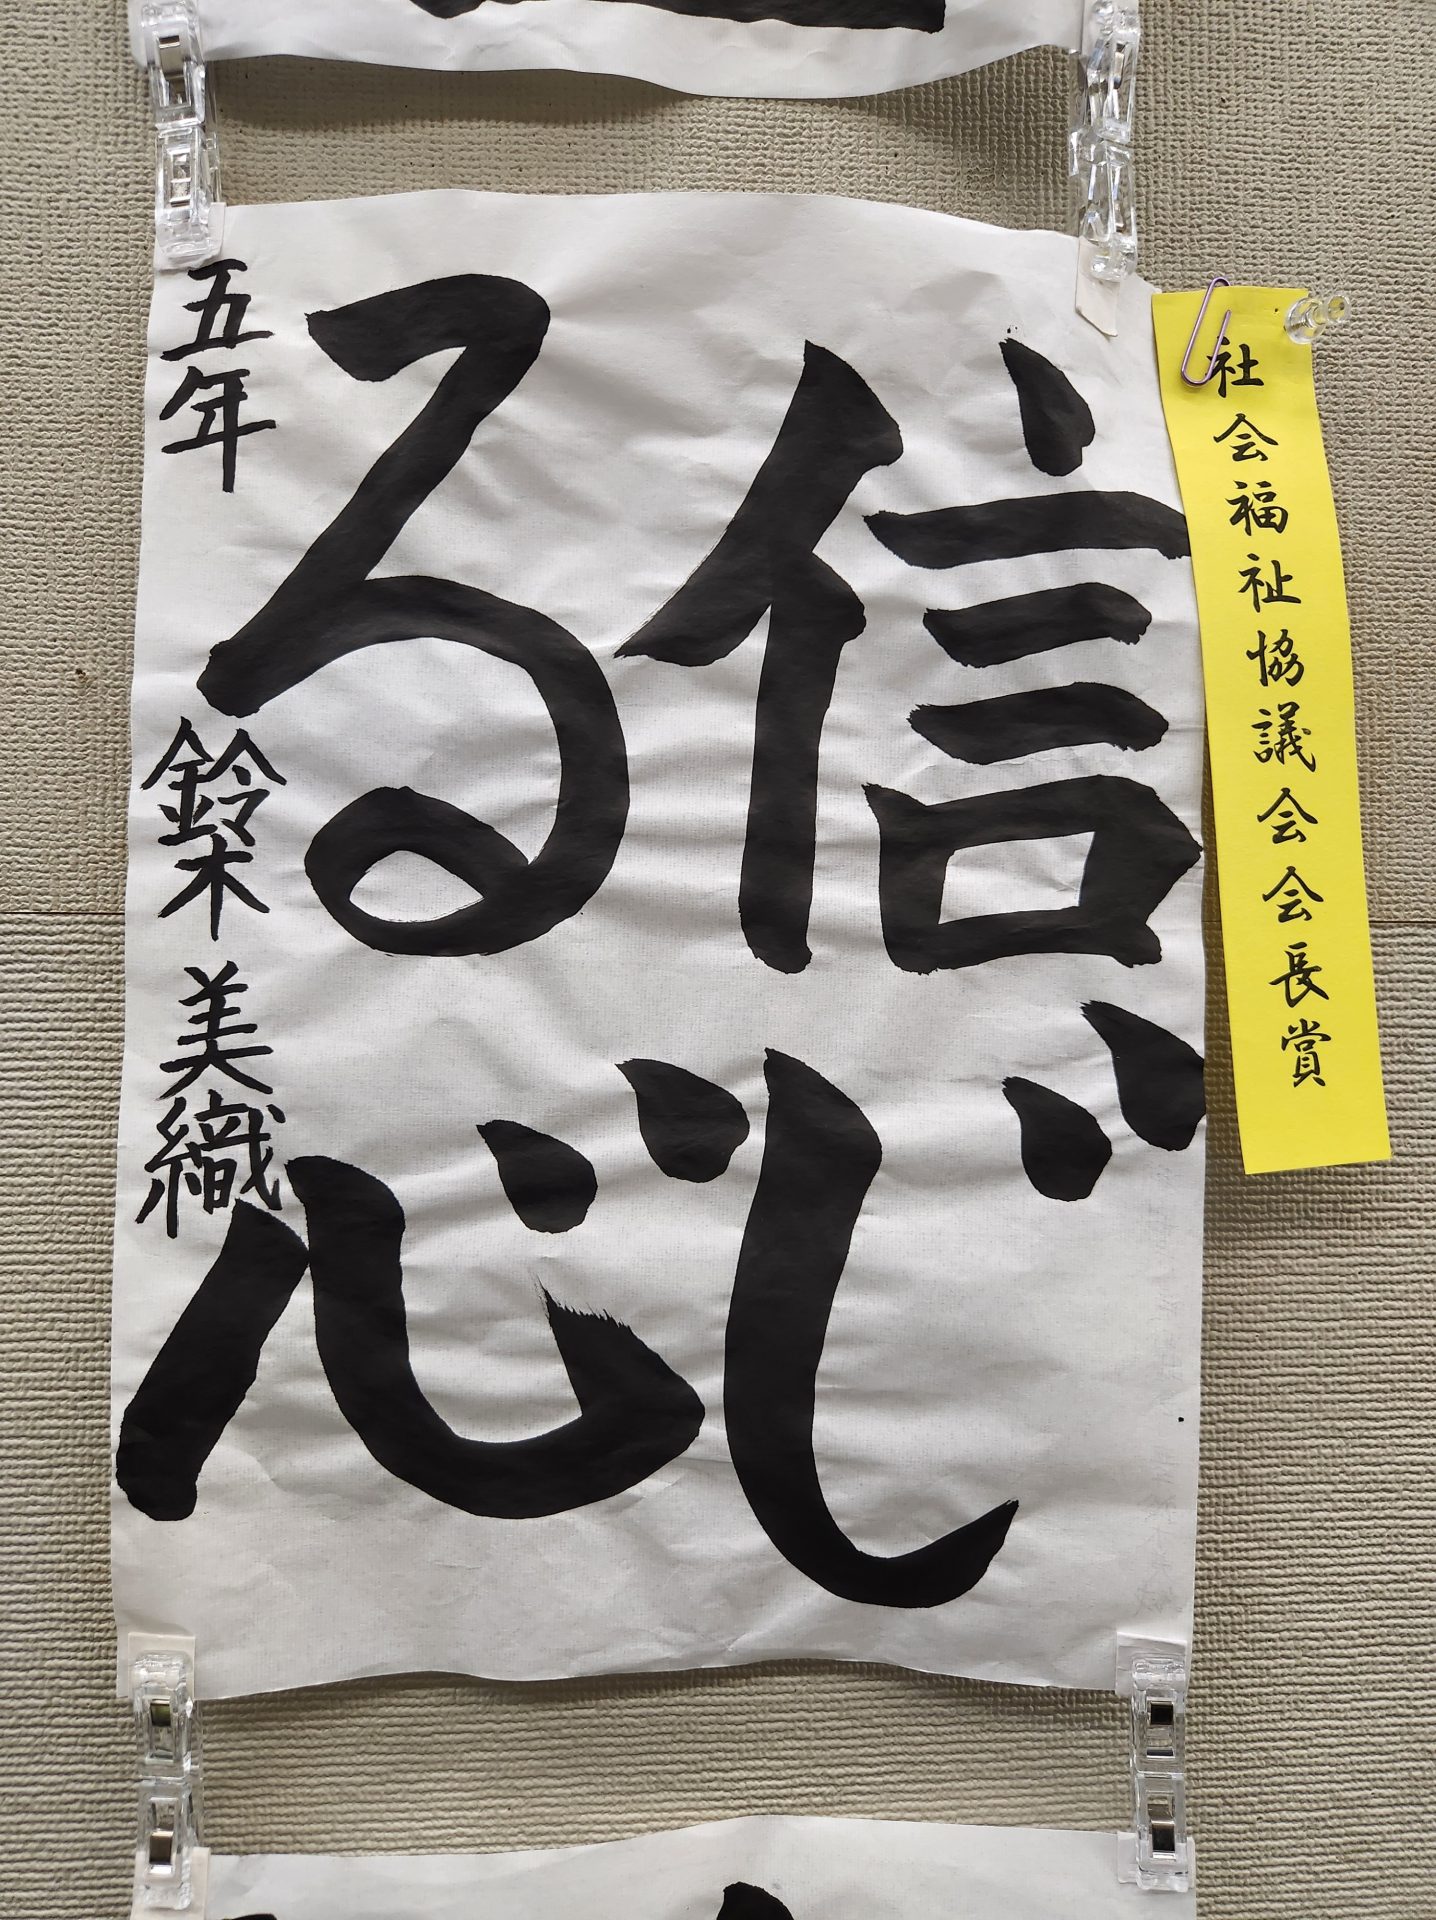 社会福祉協議会会長賞
信じ
る心
五年 鈴木 美織